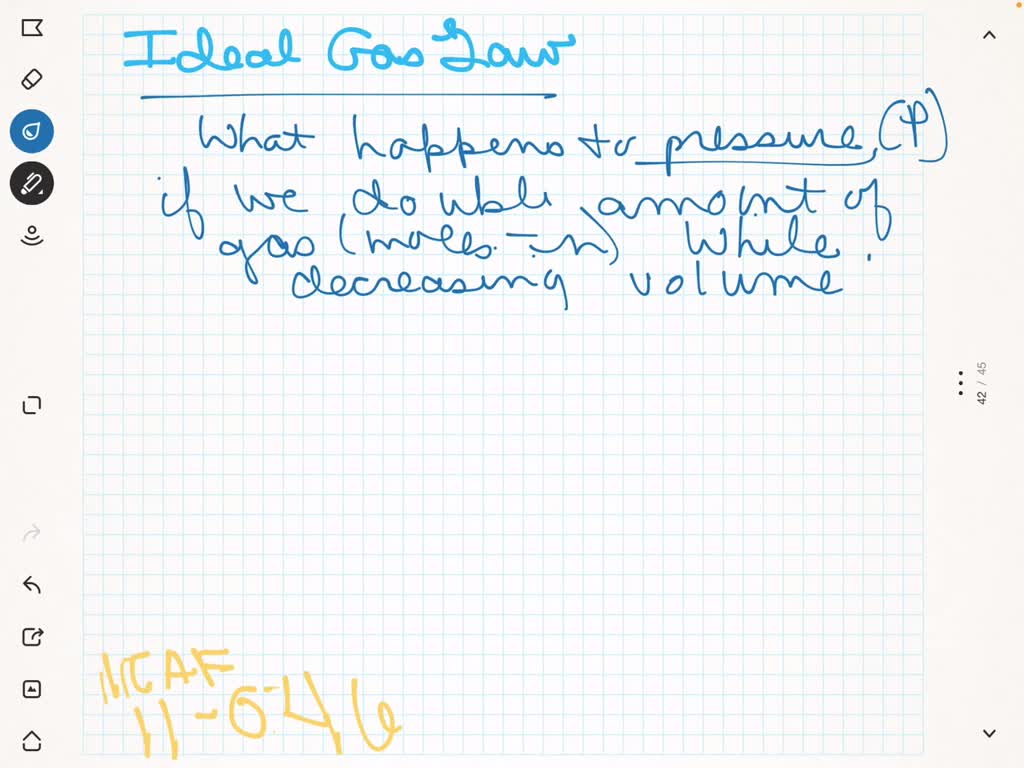 Ideal Gas Law
What happens to pressure, (P)
if we double amount of
gas (moles - n) while
decreasing volume
42 / 45
11-046